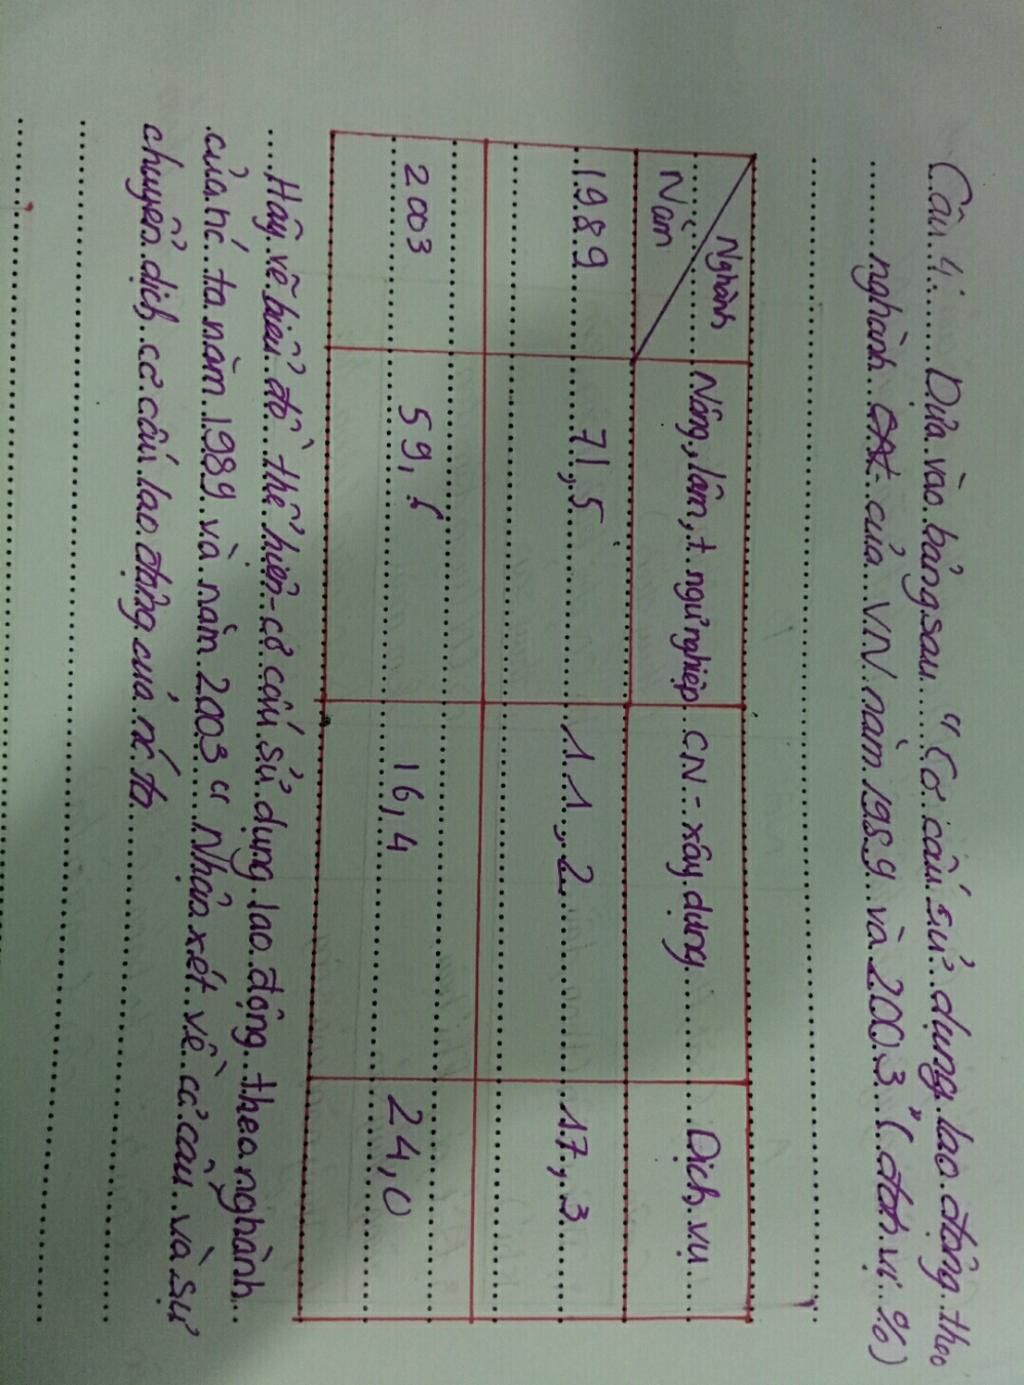 Câu 4: Dựa vào bảng sau "Cơ cấu sử dụng lao động theo
nghành của VN năm 1989 và 2003" (đơn vị %)
Nghành
Năm
Nông, lâm, ngư nghiệp
CN - xây dựng
Dịch vụ
1989 71,5 11,2 17,3
2003 59, 16,4 24,0
Hãy vẽ biểu đồ thể hiện cơ cấu sử dụng lao động theo nghành
của nc ta năm 1989 và năm 2003 Nhận xét về cơ cấu và sự
chuyển dịch cơ cấu lao động của nc ta